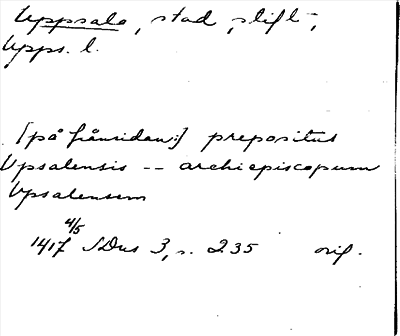 Uppsala, stad, stift,
Upps. l.
[på frånsidan:] prepositus
Upsalensis -- archiepiscopum
Upsalensem
1417 4/5 SDns 3, s. 235 orig.